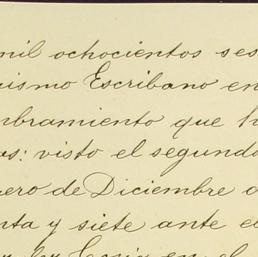 mil ochocientos ses
cismo Escribano en
mbramiento que h
as: visto el segundo
nero de Diciembre
nta y siete ante e
en el